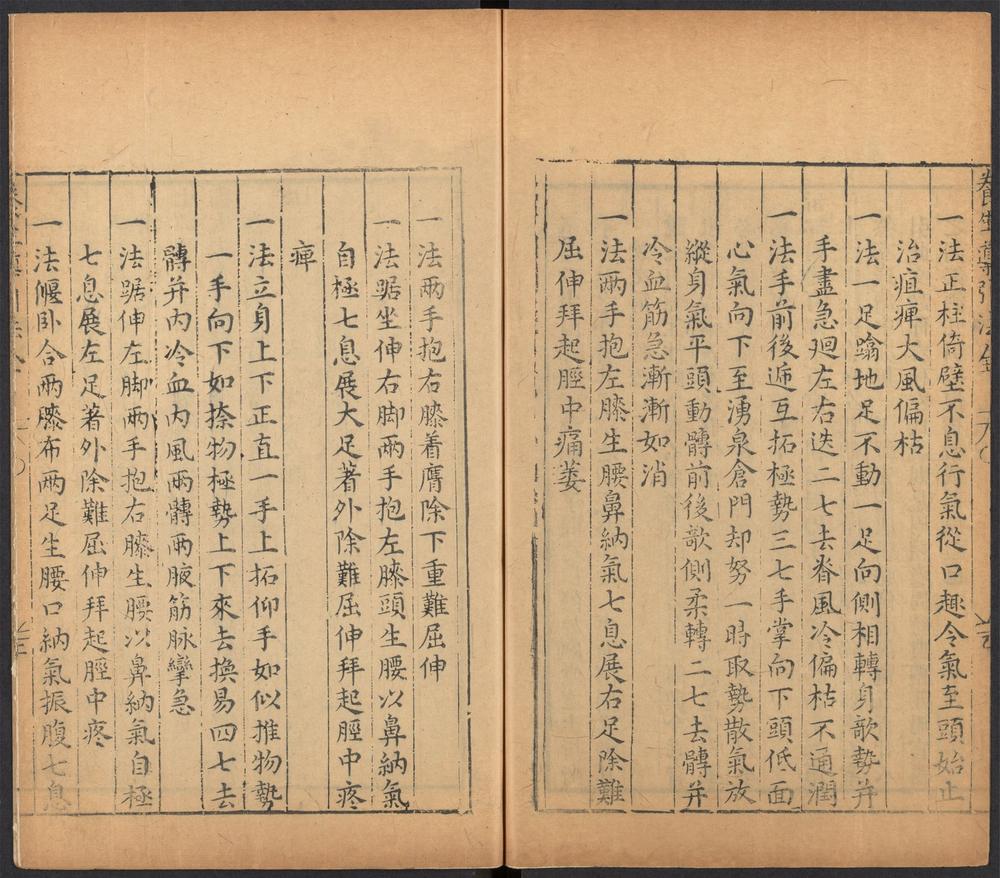 養生導引法
一法正柱倚壁不息行氣從口趣令氣至頭始止
治疽痺大風偏枯
一法一足蹹地足不動一足向側相轉身欹勢并
手盡急迴左右迭二七去脊風冷偏枯不通潤
一法手前後遞互拓極勢三七手掌向下頭低面
心氣向下至湧泉倉門却努一時取勢散氣放
縱身氣平頭動髆前後欹側柔轉二七去髆并
冷血筋急漸漸如消
一法兩手抱左膝生腰鼻納氣七息展右足除難
屈伸拜起脛中痛萎
一法兩手抱右膝着膺除下重難屈伸
一法踞坐伸右脚兩手抱左膝頭生腰以鼻納氣
自極七息展大足著外除難屈伸拜起脛中疼
痺
一法立身上下正直一手上拓仰手如似推物勢
一手向下如捺物極勢上下來去換易四七去
髆并內冷血內風兩髆兩腋筋脉攣急
一法踞伸左脚兩手抱右膝生腰以鼻納氣自極
七息展左足著外除難屈伸拜起脛中疼
一法偃卧合兩膝布兩足生腰口納氣振腹七息